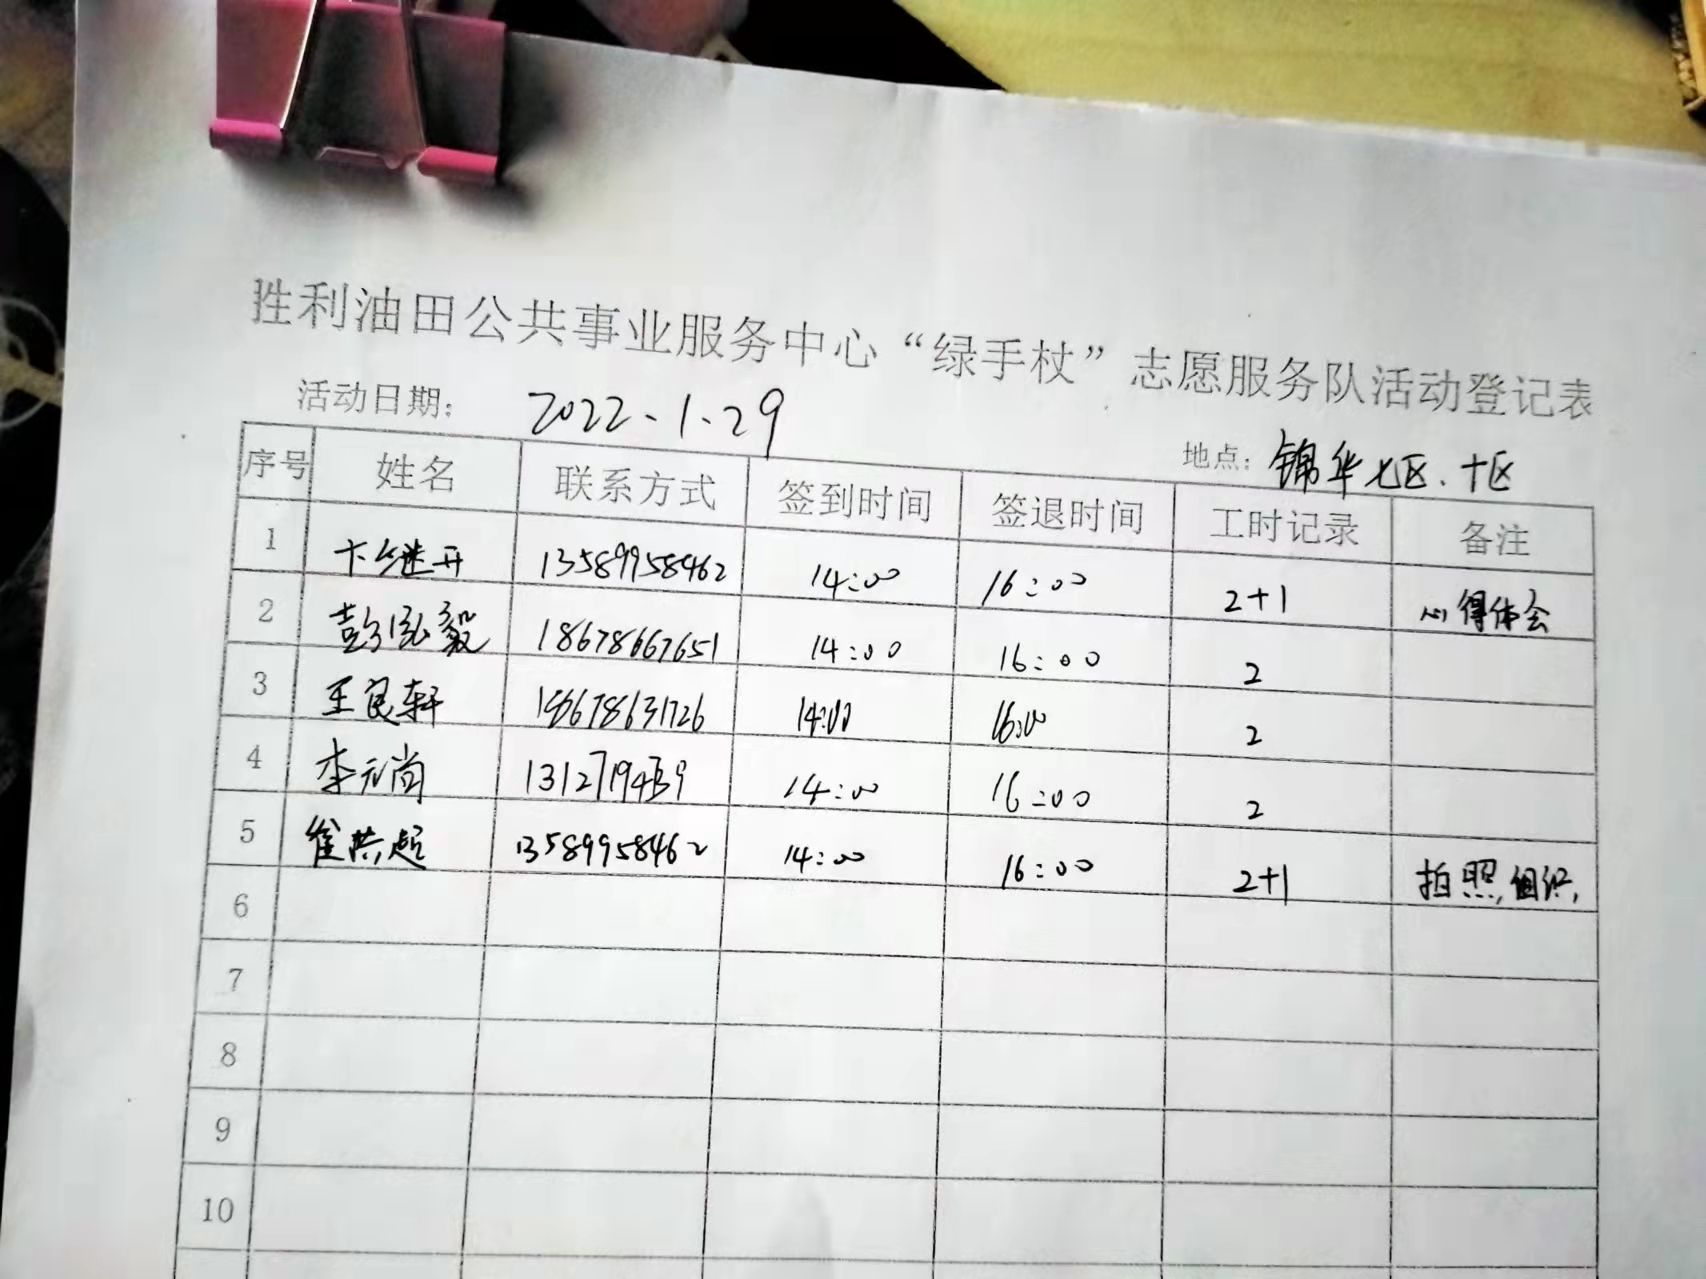 胜利油田公共事业服务中心“绿手杖”志愿服务队活动登记表
活动日期： 2022、1、29
地点：锦华七区、十区
序号 姓名 联系方式 签到时间 签退时间 工时记录 备注
1 卞继开 13589958462 14:00 16:00 2+1 心得体会
2 彭泓毅 18678667651 14:00 16:00 2
3 王良轩 18678631726 14:00 16:00 2
4 李元尚 14:00 16:00 2
5 崔洪超 13589958462 14:00 16:00 2+1 拍照,组织,
6
7
8
9
10